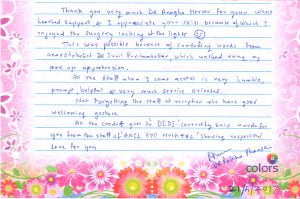 Thank you very much DR Anagha Heroor for your whole
hearted support & I appreciate your skill because of which I
enjoyed the surgery looking at the lights
This was possible because of comforting words from
Anaesthetist Dr which washed away my
pre op apprehension.
All the staff when I came across is very humble,
prompt, helpful & very much service oriented.
Not forgetting the staff at reception who have good
welcoming gesture.
All the credit goes to "DIDI" correctly said words for
you from the staff of ANIL EYE HOSPITAL showing respectful
love for you
Dr
colors
21/4/2017